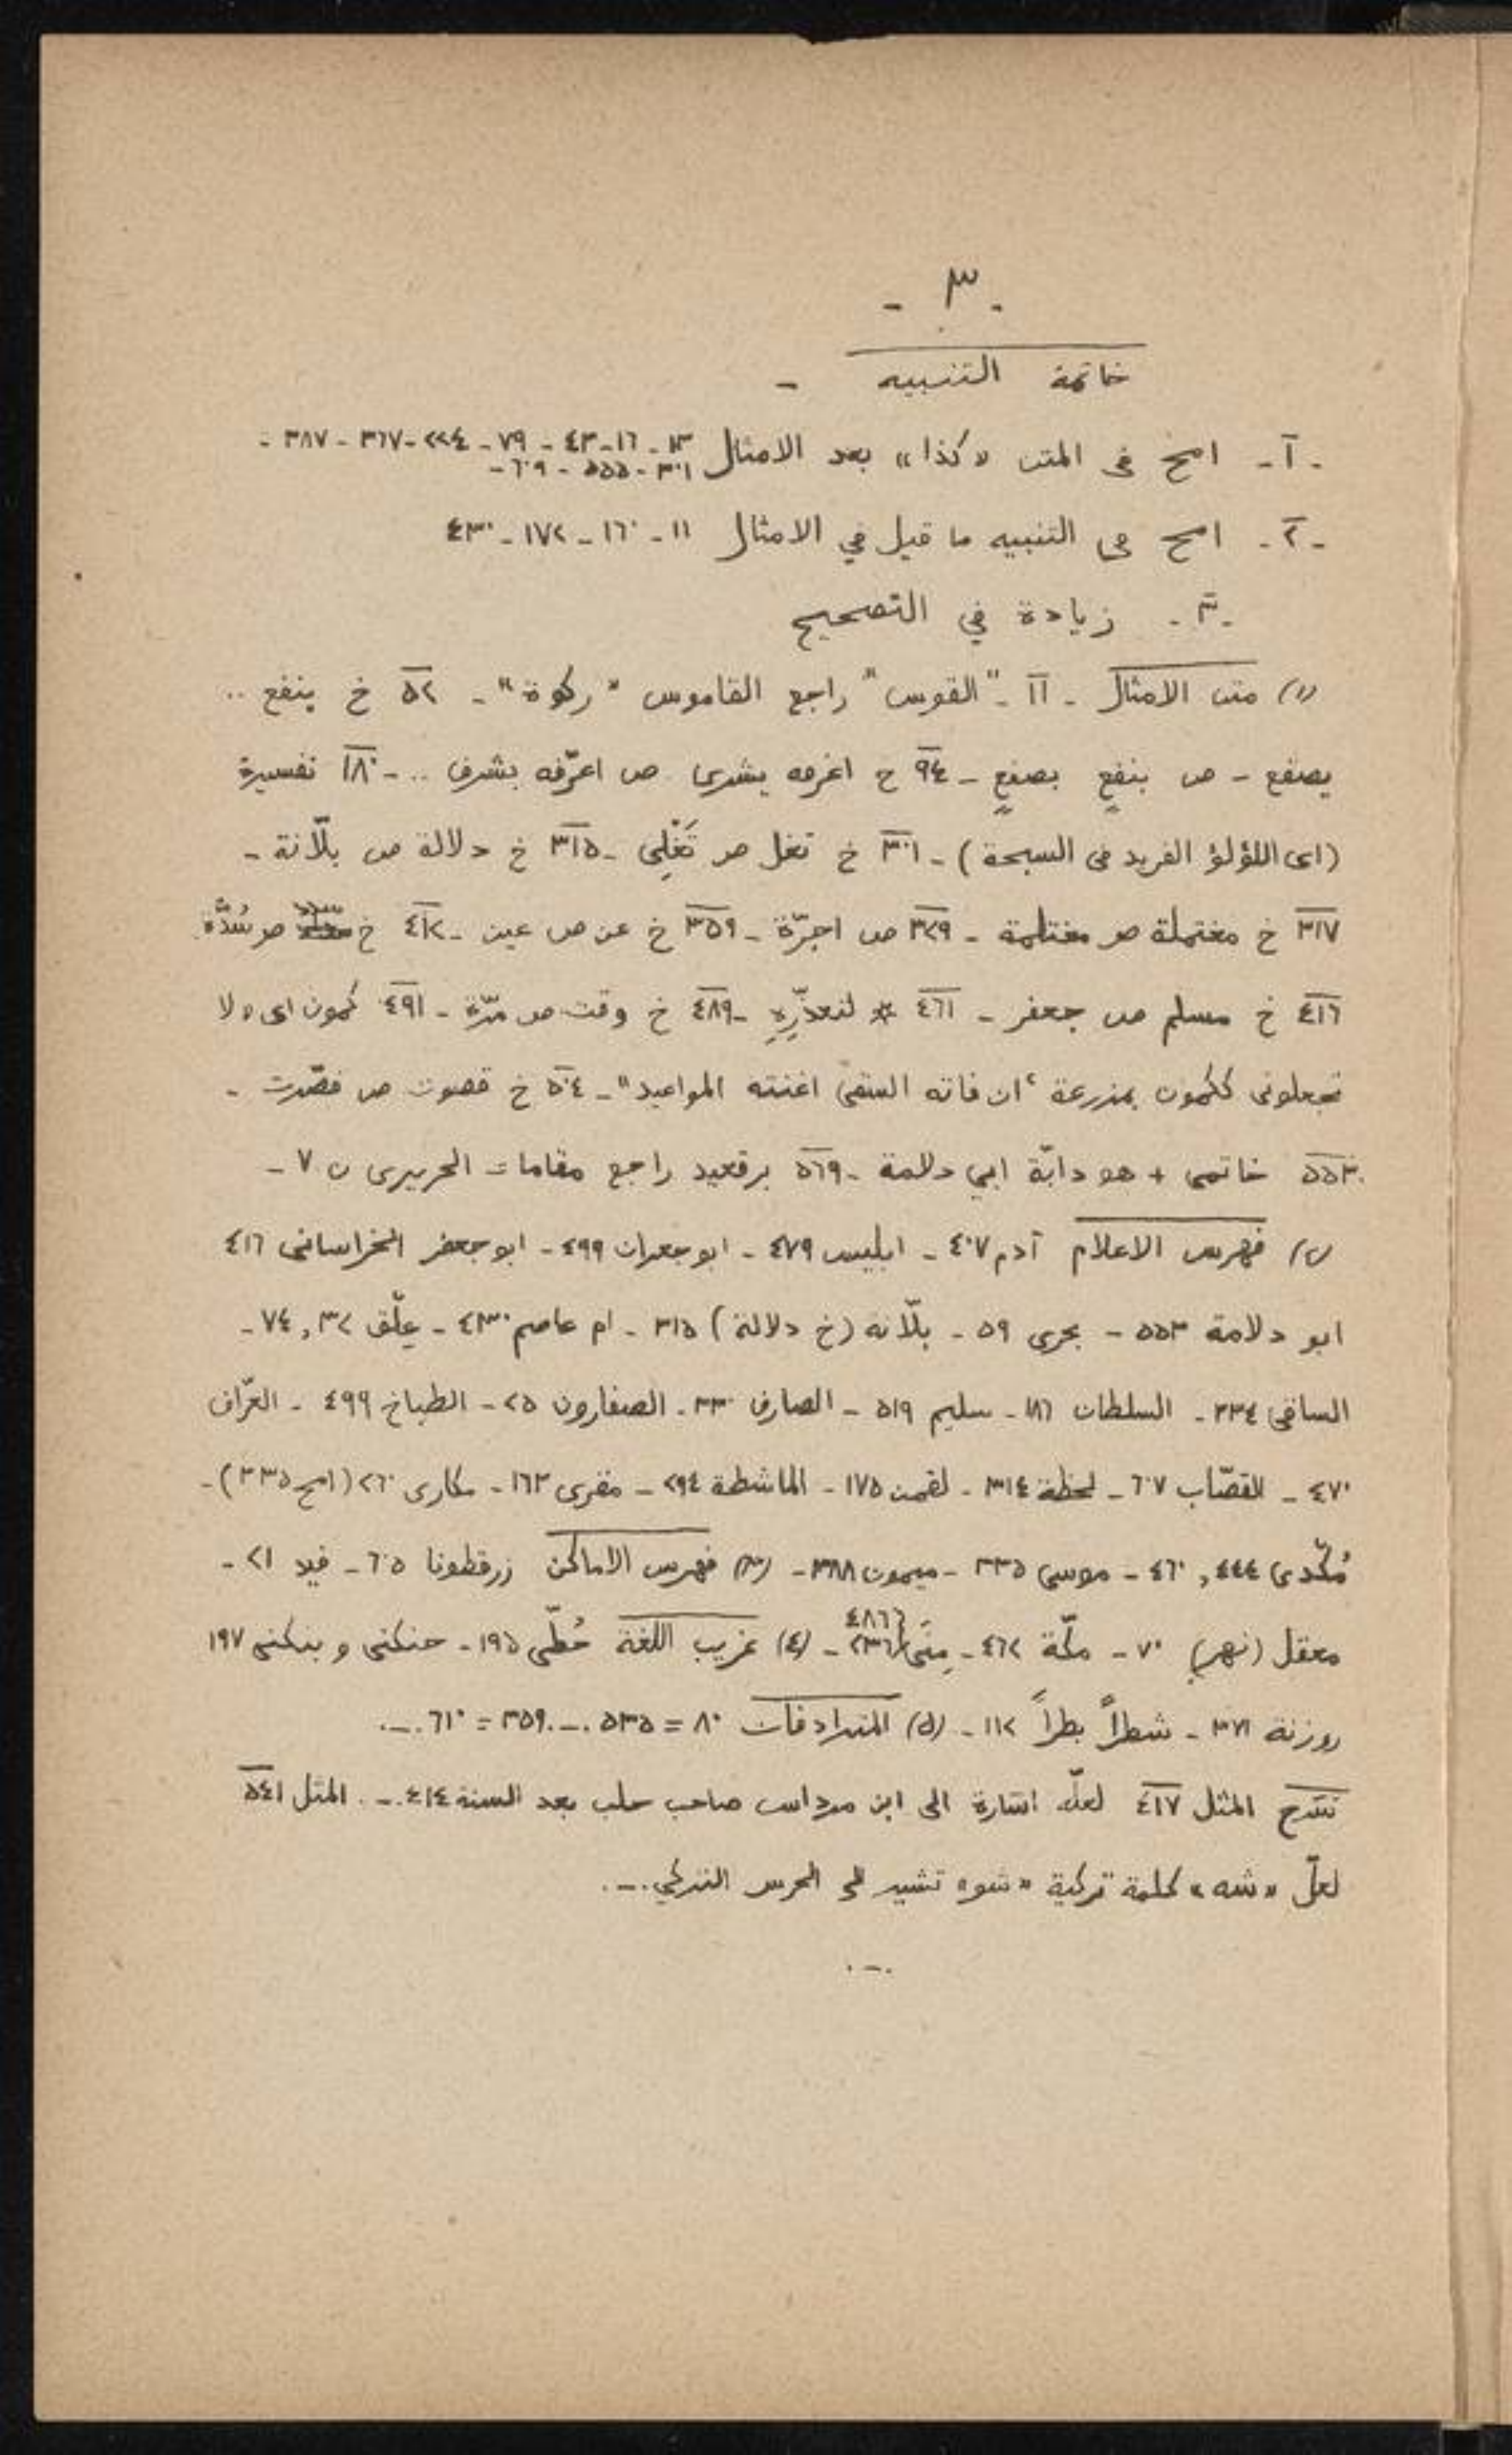 - ٣ -
خاتمة التنبيه -
- ١ - امح في المتن «كذا» بعد الامثال ١٣ - ١٦ - ٤٣ - ٧٩ - ٢٢٤ - ٣٦٧ - ٣٨٧ -
٣٠١ - ٥٥٥ - ٦٠٩ -
- ٢ - امح في التنبيه ما قيل في الامثال ١١ - ١٦٠ - ١٧٢ - ٤٣٠
- ٣ - زيادة في التصحيح
(١) متن الامثال - ١١ - "القوس" راجع القاموس "ركوة" - ٥٢ خ ينفع ..
يصفع - ص بنفعٍ بصفعٍ - ٩٤ خ اعرفه بشرى ص اعرّفه بشرف .. - ١٨٠ تفسيرة
(اى اللؤلؤ الفريد فى السبحة) - ٣٠١ خ تغل ص تَغْلِى - ٣١٥ خ دلالة ص بلّانة -
٣١٧ خ مغتملة ص مغتلمة - ٣٢٩ ص اجرّة - ٣٥٩ خ عن ص عين - ٤١٢ خ ص سُدَّة
٤١٦ خ مسلم ص جعفر - ٤٦١ * لنعذّرِهِ - ٤٨٩ خ وقت ص مرّة - ٤٩١ كمون اى «لا
تجعلونى ككمون بمزرعة ، ان فاته السقى اغنته المواعيد" - ٥٠٤ خ قصوت ص قصّرت -
٥٥٣ خاتمى + هو دابّة ابي دلامة - ٥٦٩ برقعيد راجع مقامات الحريرى ن ٧ -
(٢) فهرس الاعلام آدم ٤٠٧ - ابليس ٤٧٩ - ابو جعران ٤٩٩ - ابو جعفر الخراسانى ٤١٦
ابو دلامة ٥٥٣ - بحرى ٥٩ - بلّانة (خ دلالة) ٣١٥ - ام عاصم ٤٣٠ - علّق ٣٢, ٧٤ -
السافى ٢٣٤ - السلطان ١٨٦ - سليم ٥١٩ - الصارف ٣٣٠ - الصفارون ٢٥ - الطباخ ٤٩٩ - العرّاف
٤٧٠ - القصّاب ٦٠٧ - لحظة ٣١٤ - لقمن ١٧٥ - الماشطة ٢٩٤ - مقرى ١٦٣ - مكارى ٢٦٠ (امح ٣٣٥) -
مُكّدى ٤٤٤, ٤٦٠ - موسى ٣٣٥ - ميمون ٣٨٨ - (٣) فهرس الاماكن زرقطونا ٦٠٥ - فيد ٢١ -
معقل (نهر) ٧٠ - مكّة ٤٦٢ - مِنَى ٤٨٦ ٢٣٦ - (٤) غريب اللغة حُطّى ١٩٥ - حنكنى وبنكنى ١٩٧
روزنة ٣٧١ - شطراً بطراً ١١٢ - (٥) المترادفات ٨٠ = ٥٣٥ . - . ٣٥٩ = ٦١٠ . - .
شرح المثل ٤١٧ لعلّه اشارة الى ابن مرداس صاحب حلب بعد السنة ٤١٤ . - . المثل ٥٤١
لعلّ «شه» كلمة تركية «شو» تشير الى الحرس التركي . - .
. - .